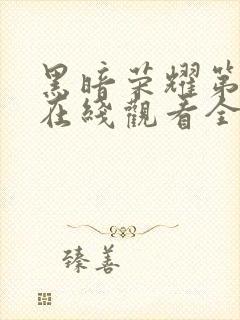 黑暗荣耀第
在綫觀看全
臻善